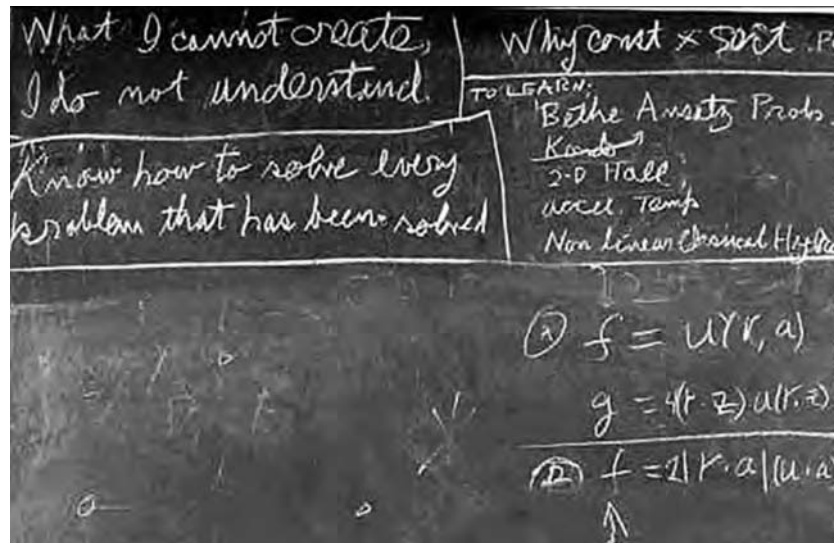 What I cannot create,
I do not understand.
Know how to solve every
problem that has been solved
Why const × sort .P
TO LEARN:
Bethe Ansatz Probs.
Kondo
2-D Hall
accel. Temp
Non linear Classical Hydro
f = U(r, a)
g = 4(r·z) u(r·z)
f = 2|r·a|(u·a)